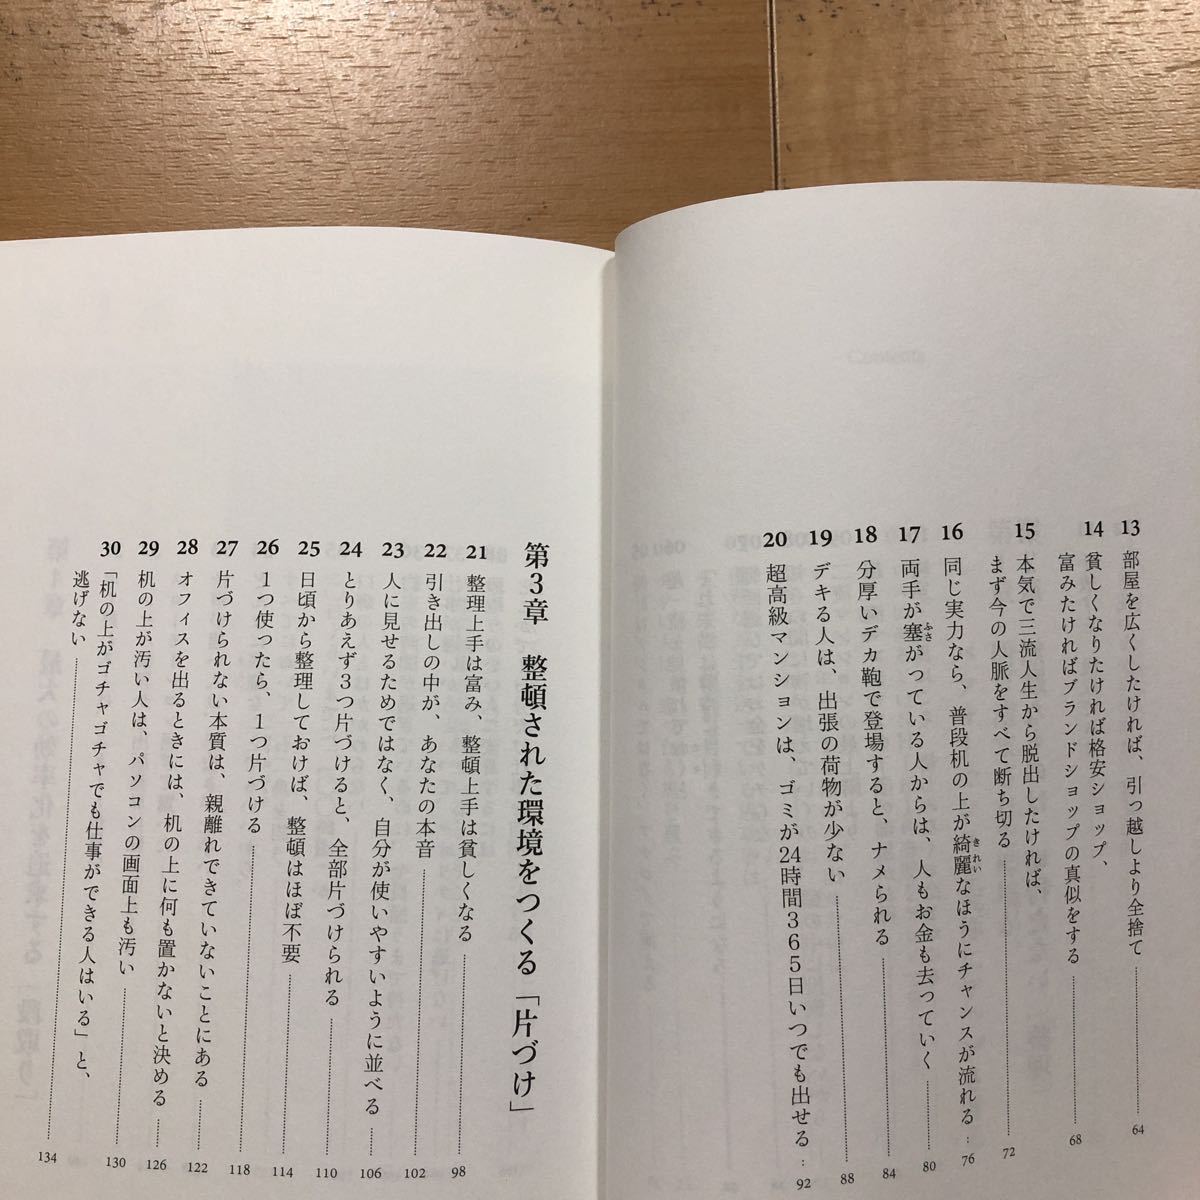 13 部屋を広くしたければ、引っ越しより全捨て 64
14 貧しくなりたければ格安ショップ、
富みたければブランドショップの真似をする 68
15 本気で三流人生から脱出したければ、
まず今の人脈をすべて断ち切る 72
16 同じ実力なら、普段机の上が綺麗(きれい)なほうにチャンスが流れる 76
17 両手が塞(ふさ)がっている人からは、人もお金も去っていく 80
18 分厚いデカ鞄で登場すると、ナメられる 84
19 デキる人は、出張の荷物が少ない 88
20 超高級マンションは、ゴミが24時間365日いつでも出せる 92
第3章 整頓された環境をつくる「片づけ」
21 整理上手は富み、整頓上手は貧しくなる 98
22 引き出しの中が、あなたの本音 102
23 人に見せるためではなく、自分が使いやすいように並べる 106
24 とりあえず3つ片づけると、全部片づけられる 110
25 日頃から整理しておけば、整頓はほぼ不要 114
26 1つ使ったら、1つ片づける 118
27 片づけられない本質は、親離れできていないことにある 122
28 オフィスを出るときには、机の上に何も置かないと決める 126
29 机の上が汚い人は、パソコンの画面上も汚い 130
30 「机の上がゴチャゴチャでも仕事ができる人はいる」と、
逃げない 134